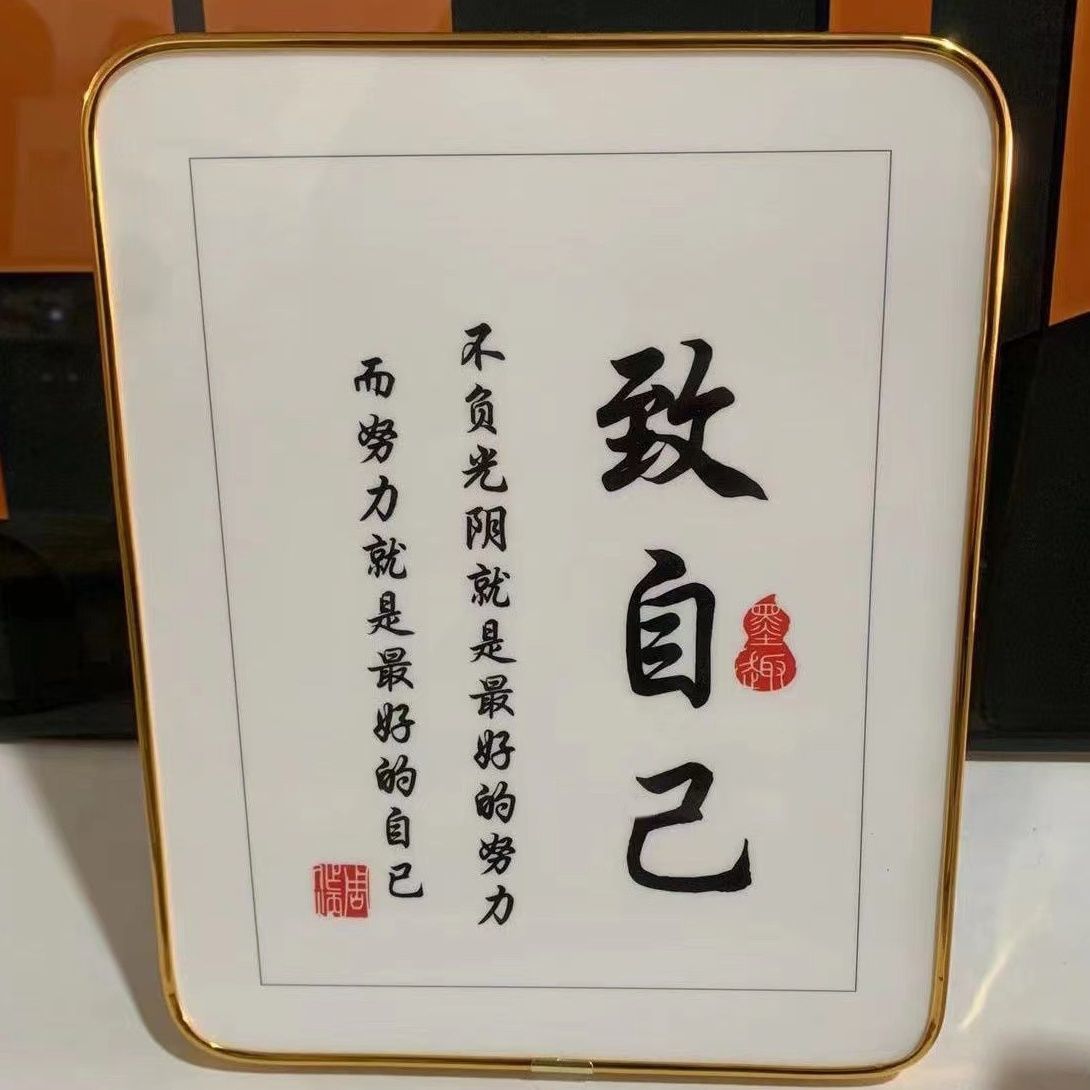 致自己
墨趣
不负光阴就是最好的努力
而努力就是最好的自己